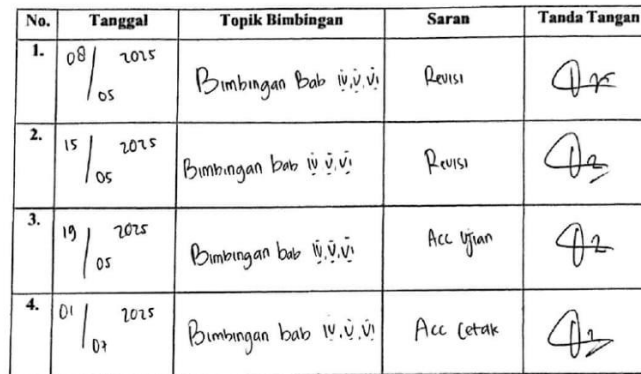 No. Tanggal Topik Bimbingan Saran Tanda Tangan
1. 08/05 2025 Bimbingan Bab iv, v, vi Revisi
2. 15/05 2025 Bimbingan bab iv v, vi Revisi
3. 19/05 2025 Bimbingan bab iv, v, vi Acc Ujian
4. 01/07 2025 Bimbingan bab iv, v, vi Acc Cetak